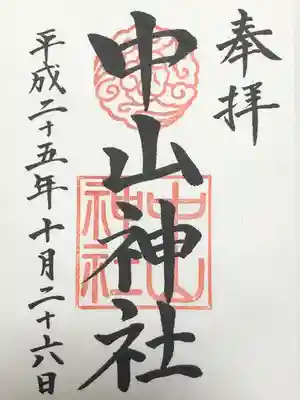 奉拝
中山神社
平成二十五年十月二十六日
中山
神社